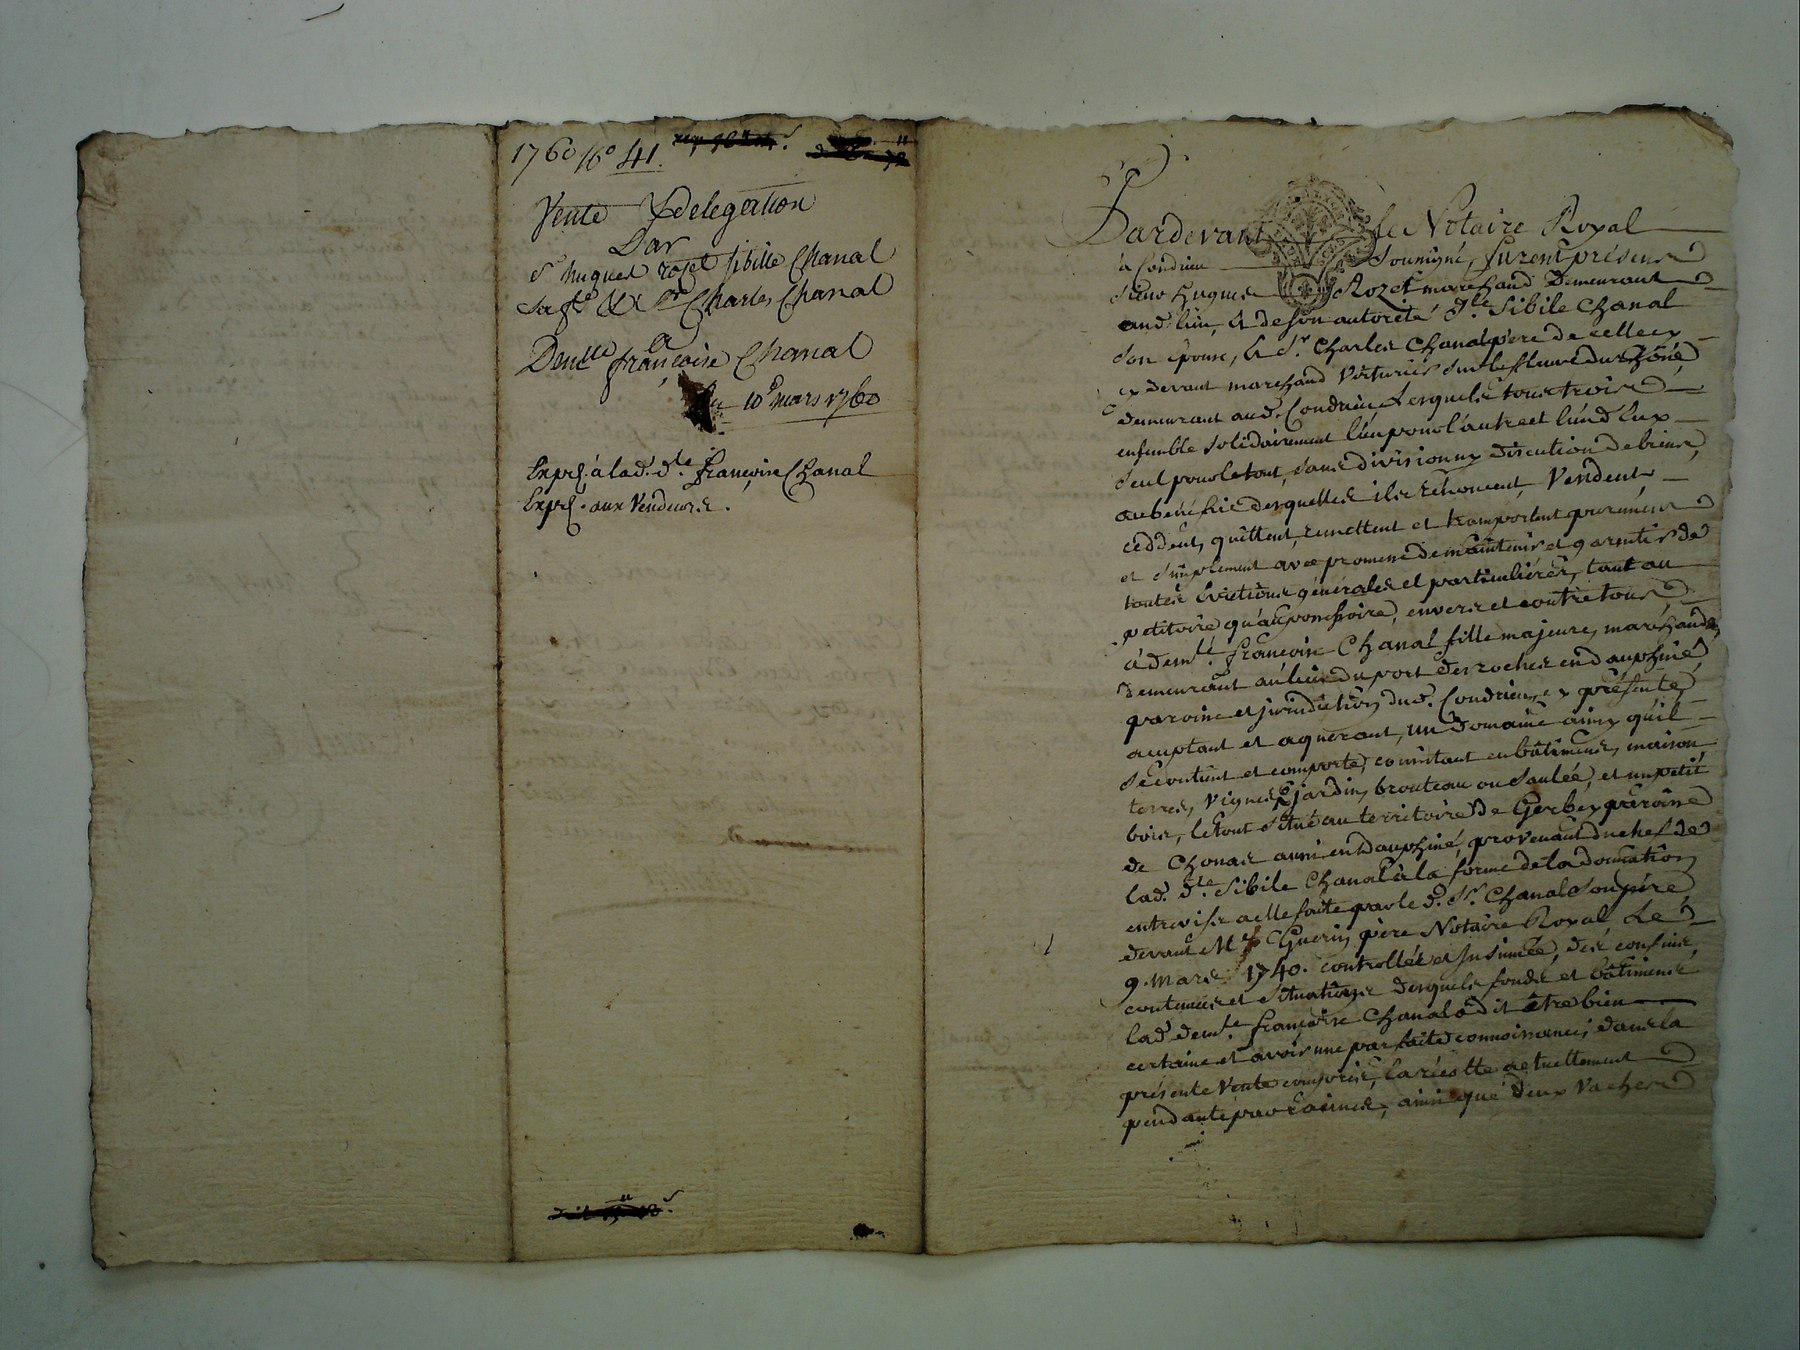 1760 No 41.
Vente & delegation
Par
Sr hugues rozet sibille Chanal
sa fe. & Sr Charles Chanal
a
Demlle francoise Chanal
Du 10e mars 1760
Exped. à lad. dle. françoise Chanal
Exped. aux Vendeurs.
Pardevant le Notaire Royal
à Condrieu soussigné, furent présens
sieur hugues Rozet marchand Demeurant
aud. lieu, & de son autorité dlle Sibile Chanal
son épouse, & sr. Charles Chanal père de celle cy
cy devant marchand Voiturier sur le fleuve du Rhône
demeurant aud. Condrieu, Lesquels tous trois
ensemble solidairement l'un pour l'autre et l'un d'Eux
seul pour le tout, sans division ny discution de biens,
au bénéfice desquelles ils rénoncent, Vendent
ceddent, quittent, remettent et transportent purement
et simplement avec promesse de maintenir et garantir de
toutes Evictions générales et particulières, tant au
petitoire qu'au possessoire, envers et contre tous
à demlle. françoise Chanal fille majeure, marchande,
demeurant au lieu du port des roches en dauphiné
paroisse et jurisdiction dud. Condrieu, cy présente
acceptant et aquerant, un Domaine ainsy qu'il
s'Ecoutient et comporte, consistant en bâtimens, maison,
terres, vignes, jardin, brouteau ou saulée, et un petit
bois, le tout situé au territoire de Gerbey paroisse
de Chonas aussi en dauphiné, provenant du chef de
lad. dlle. Sibile Chanal à la forme de la donnation
entrevifs a elle faite par le d. Sr. Chanal son père
devant Me Guerin père Notaire Royal Le
9. Mars 1740. controllée et Insinuée, des confins,
contenues et situations desquels fonds et bâtimens
lad. demlle. françoise Chanal a dit être bien
certaine et avoir une parfaite connoissance; dans la
présente Vente comprise, la récolte actuellement
pendante par racines, ainsi que deux Vaches